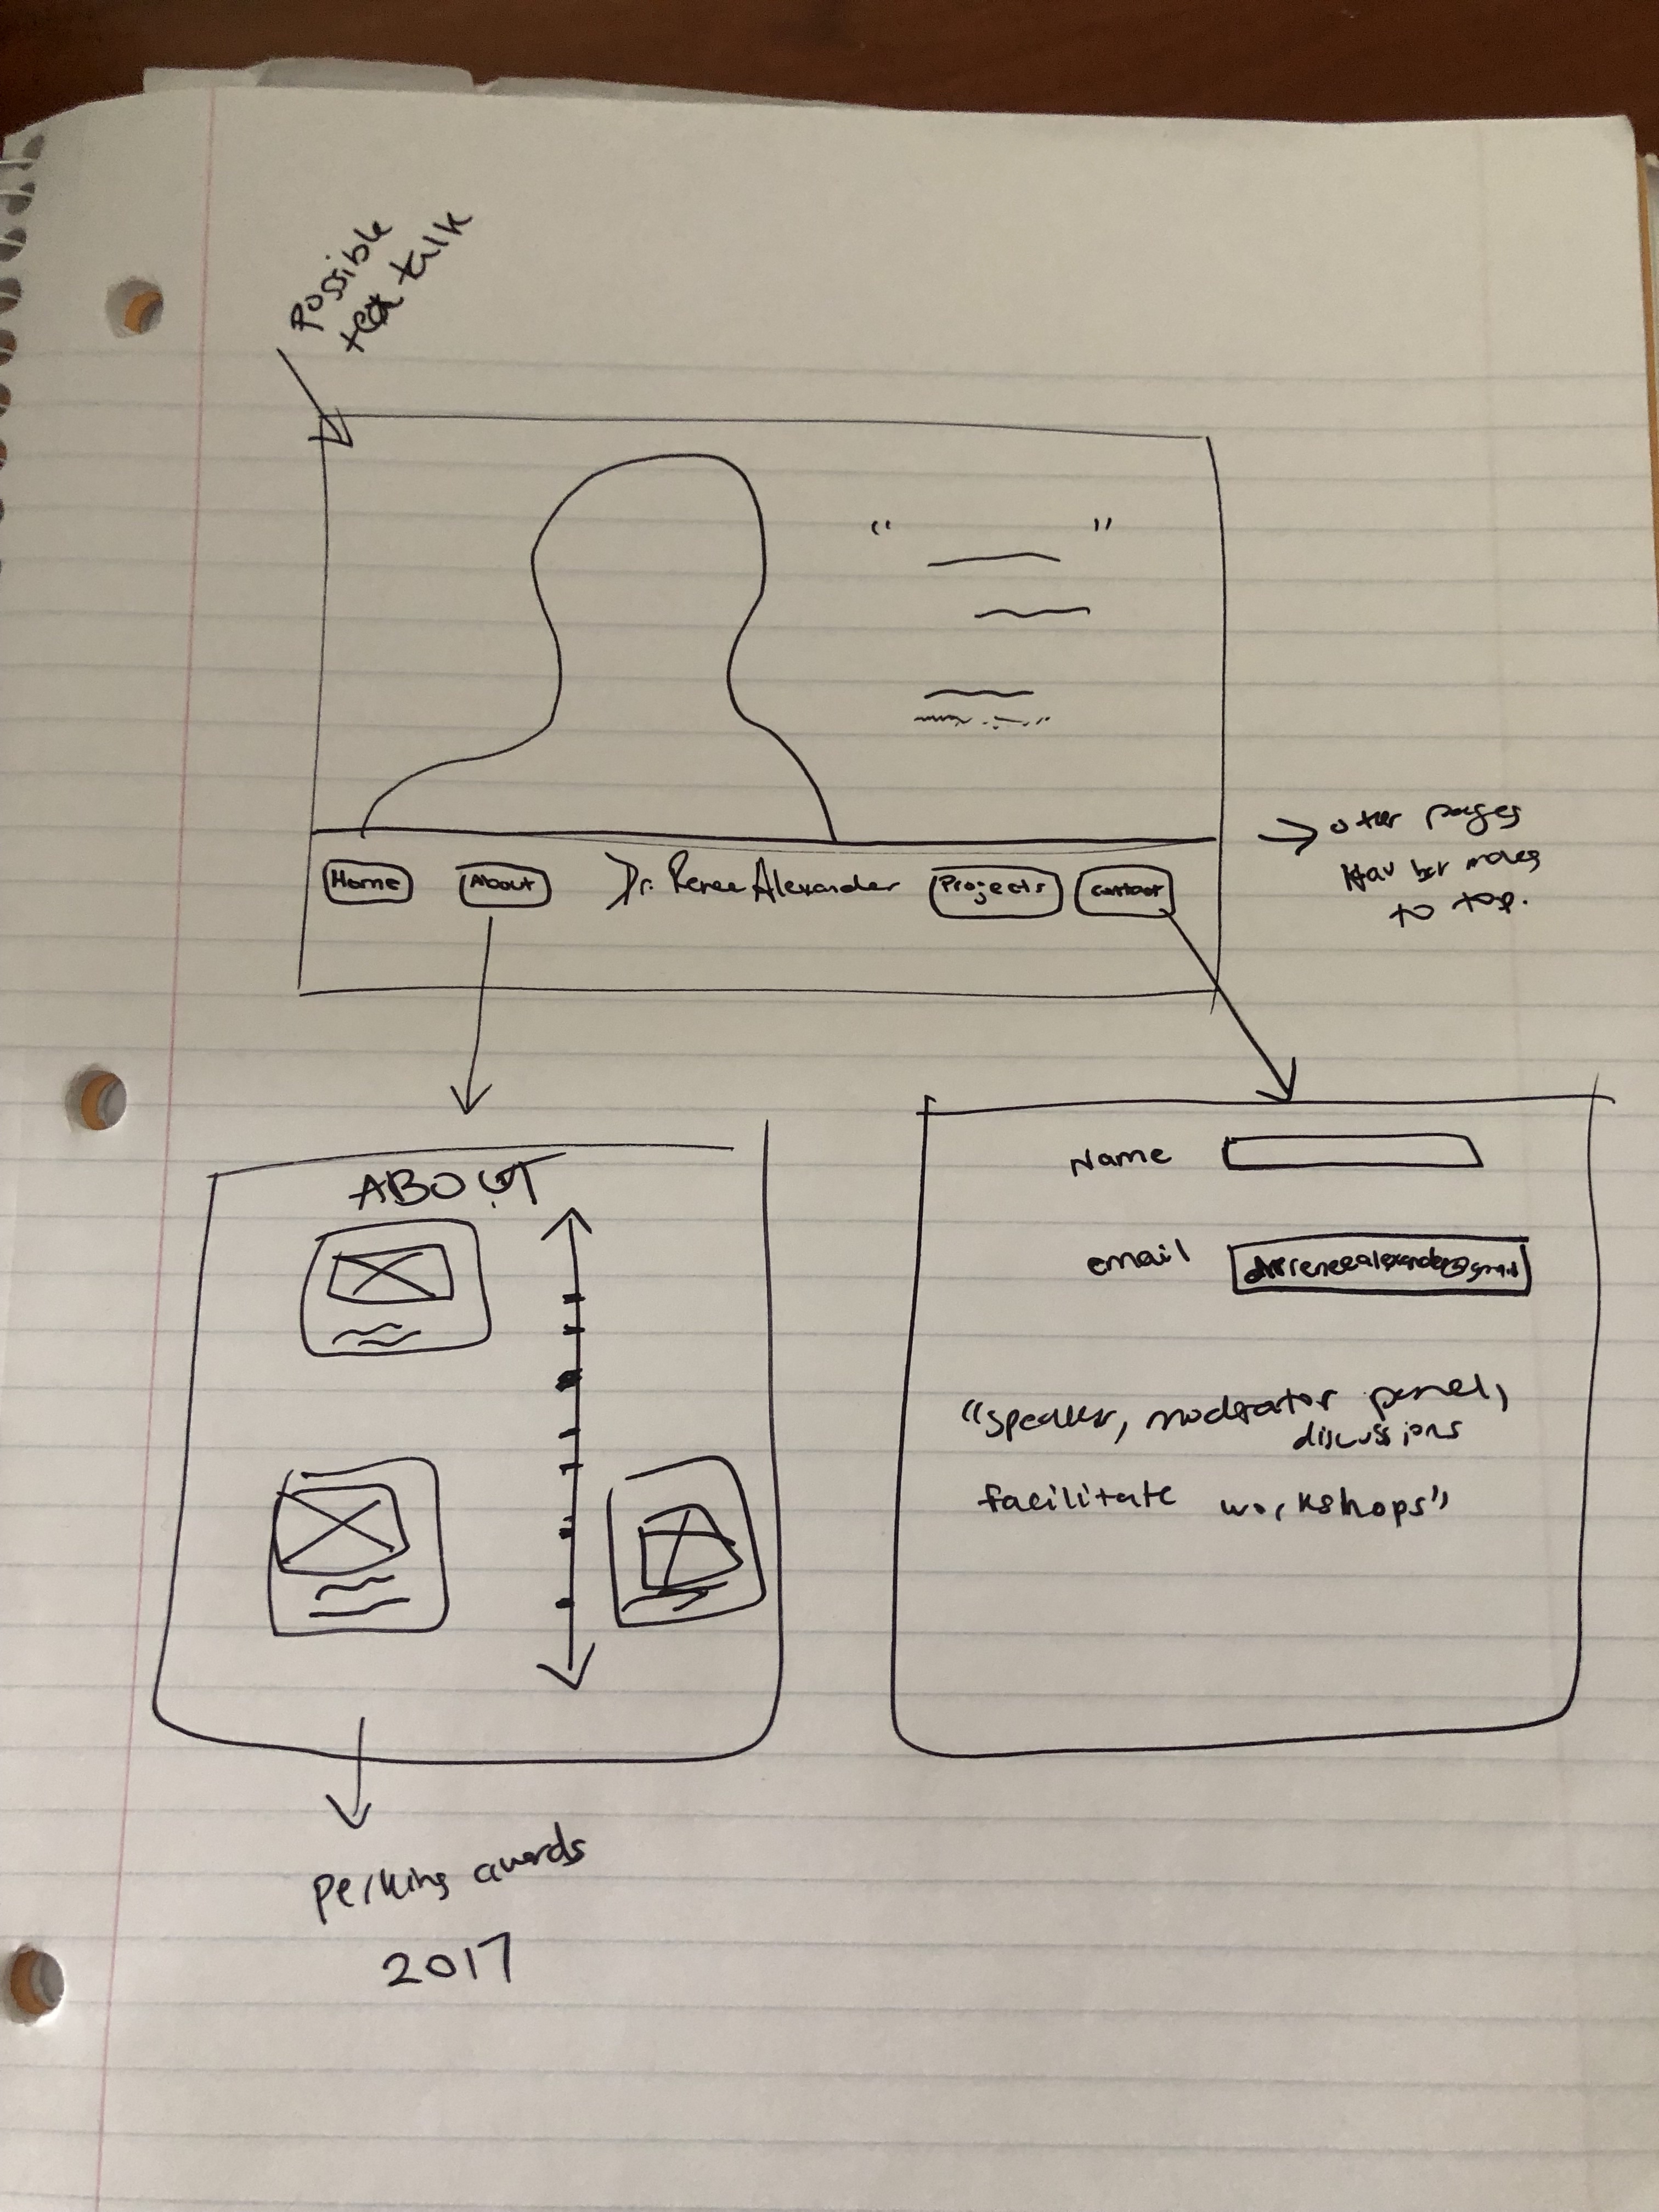 Possible
ted talk
“ ”
Home About Dr. Renee Alexander Projects contact
other pages
Nav bar moves
to top.
ABOUT
Name
email drreneealexander@gmail
“speaker, moderator panel,
discussions
facilitate workshops”
perkins awards
2017